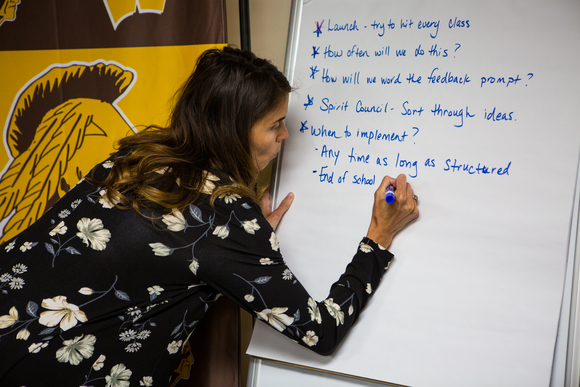 * Launch - try to hit every class
* How often will we do this?
* How will we word the feedback prompt?
* Spirit Council - Sort through ideas.
* When to implement?
- Any time as long as structured
- End of school